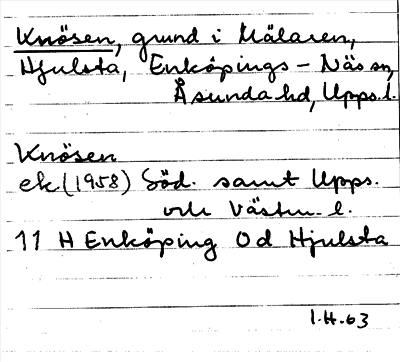 Knösen, grund i Mälaren,
Hjulsta, Enköpings-Näs sn,
Åsunda hd, Upps.l.
Knösen
ek (1958) Söd. samt Upps.
och Västm. l.
11 H Enköping 0 d Hjulsta
I.H.63